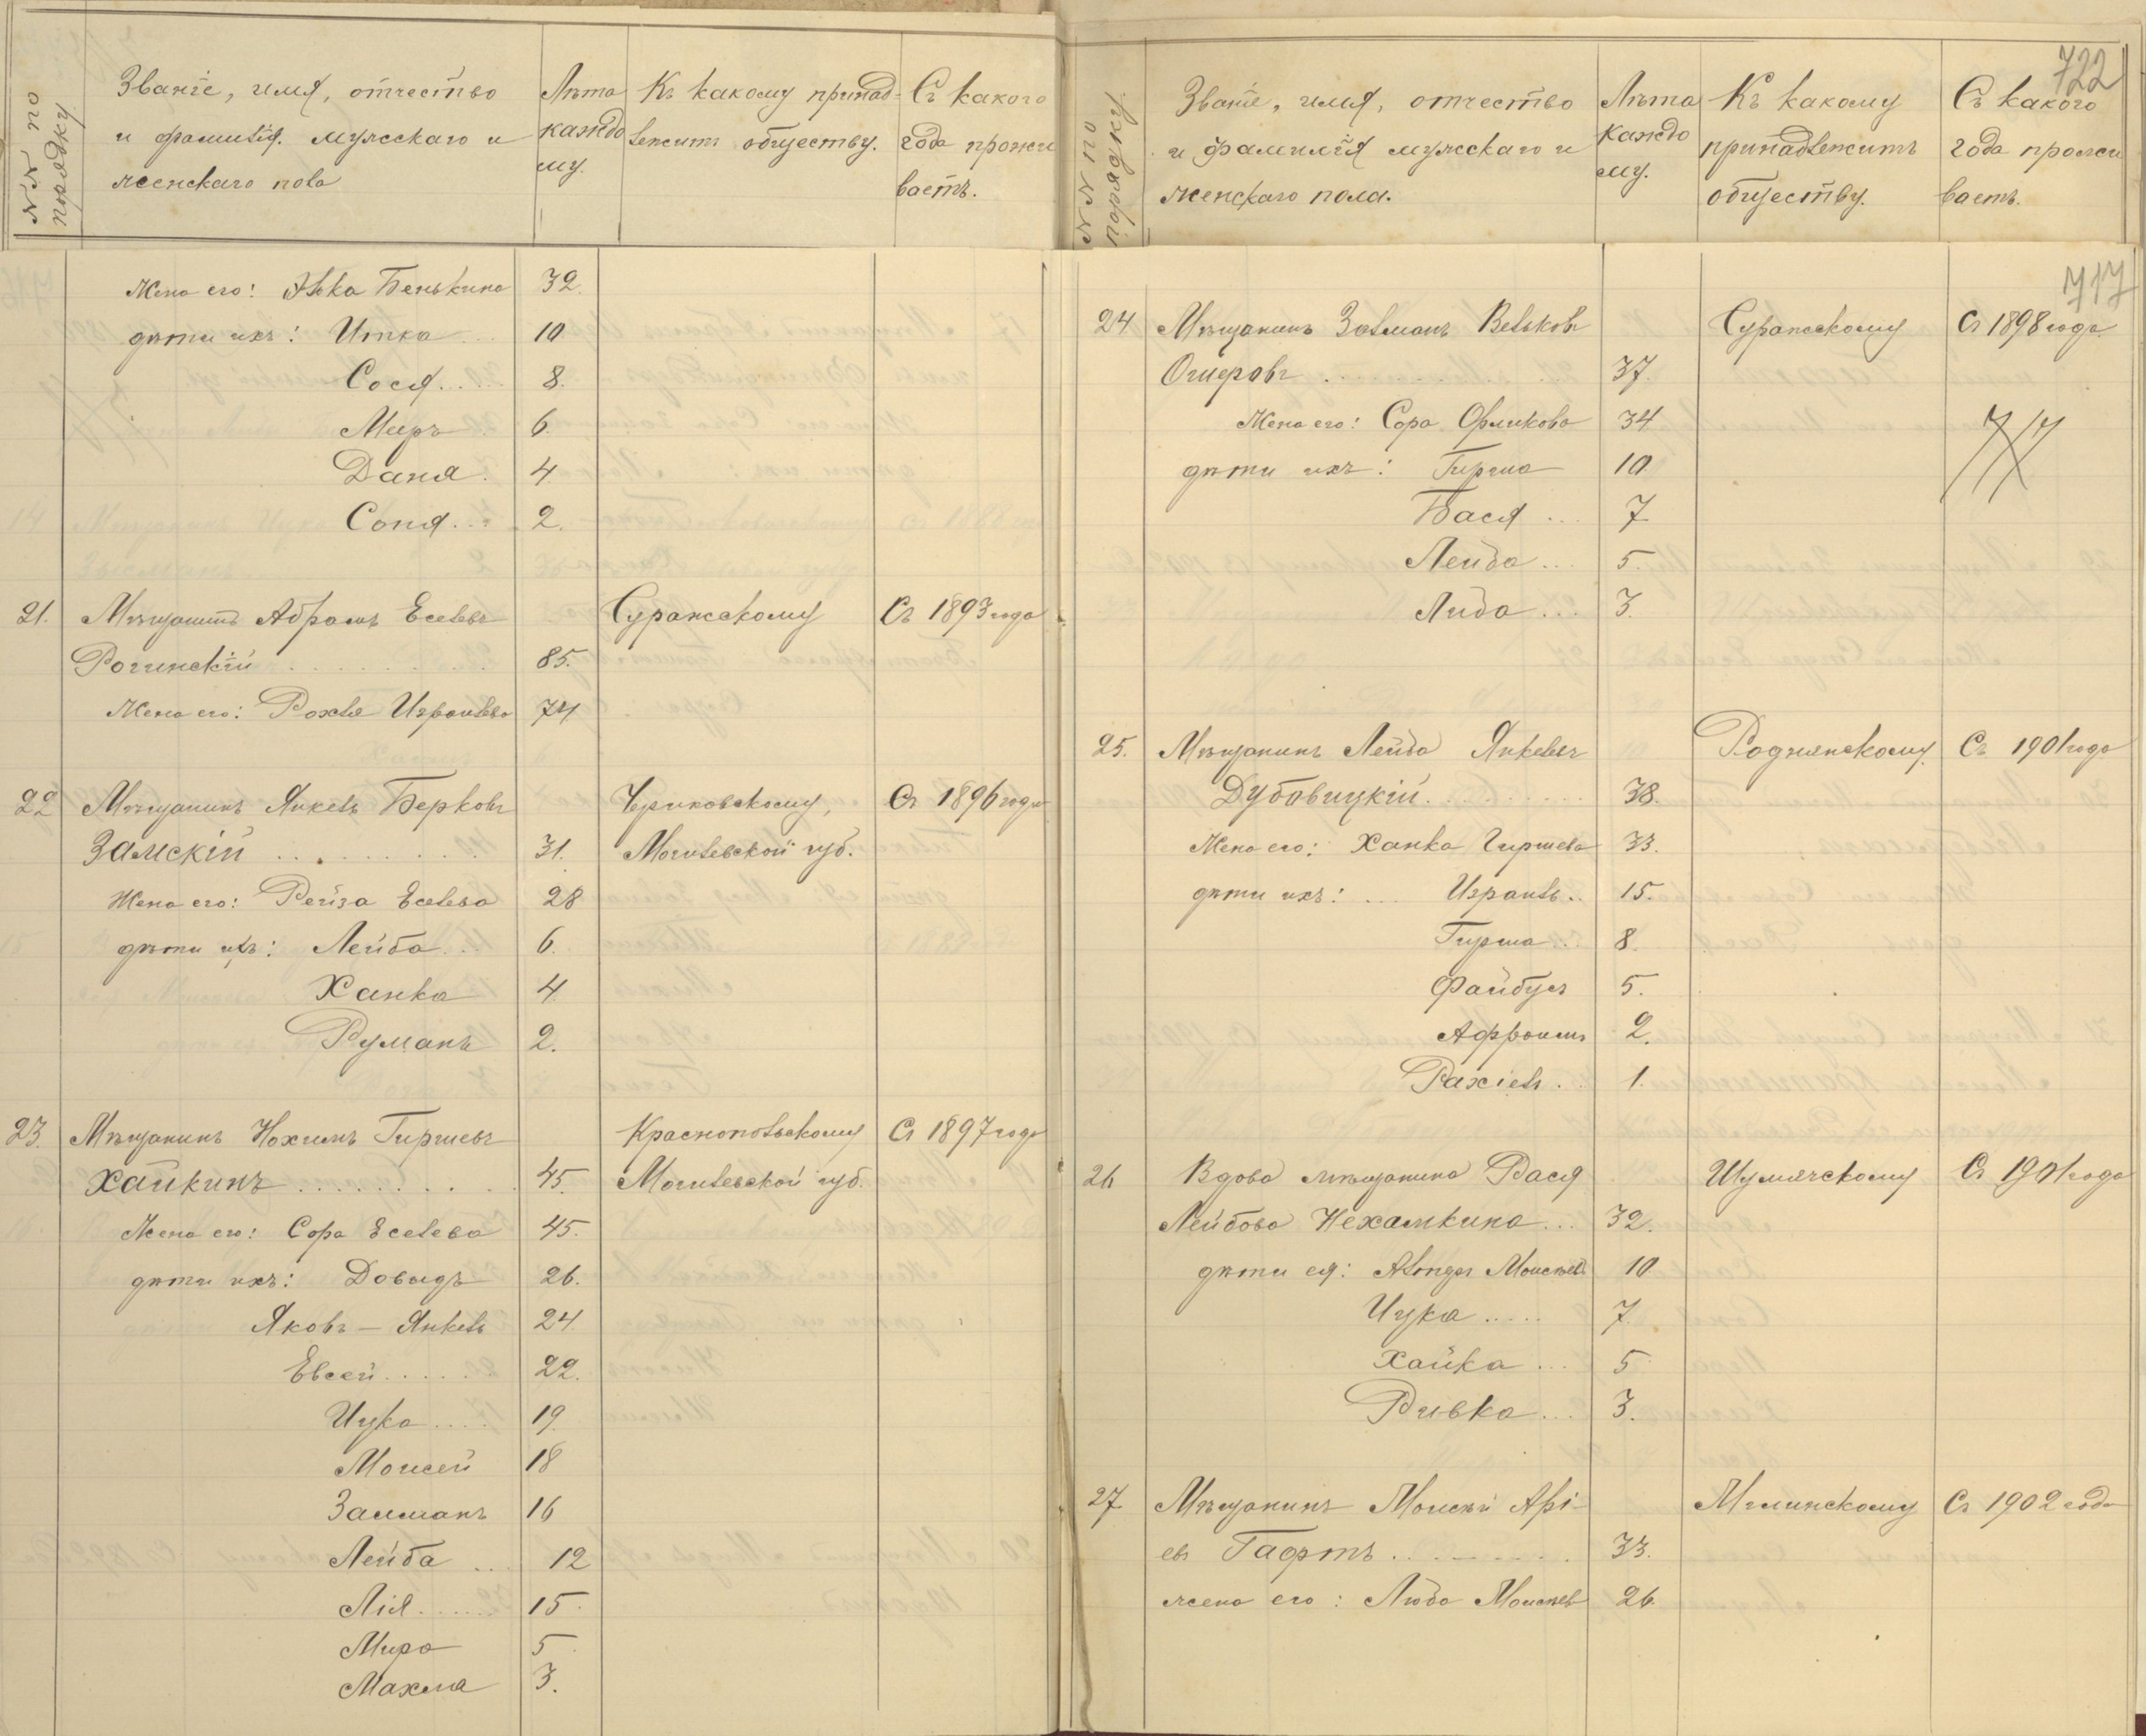 №№ по порядку
Званіе, имя, отчество
и фамилія мужскаго и
женскаго пола
Лѣта
каждо
му.
Къ какому принад-
лежитъ обществу.
Съ какого
года прожи
ваетъ.
Жена его: Элька Бенькина 32.
дѣти ихъ: Итка ... 10.
Сося ..... 8.
Мееръ 6.
Даня. 4
Соня ... 2.
21. Мѣщанинъ Абрамъ Еселевъ Суражскому Съ 1893 года
Рогинскій ......... 85.
Жена его: Рохля Израилева 74
22 Мѣщанинъ Янкель Берковъ Чериковскому, Съ 1896 года
Замскій ......... 31. Могилевской губ.
Жена его: Рейза Еселева 28
дѣти ихъ: Лейба ... 6.
Ханка 4.
Румань 2.
23. Мѣщанинъ Нохимъ Гиршевъ Краснопольскому Съ 1897 года
Хайкинъ ......... 45. Могилевской губ.
Жена его: Сора Еселева 45.
дѣти ихъ: Довыдъ 26.
Яковъ – Янкель 24
Евсей ...... 22.
Ицка .... 19.
Моисей 18
Залманъ 16
Лейба ... 12
Лія ...... 15.
Мира 5.
Махля 3.
722
№№ по порядку.
Званіе, имя, отчество
и фамилія мужскаго и
женскаго пола.
Лѣта
каждо
му.
Къ какому
принадлежитъ
обществу.
Съ какого
года прожи
ваетъ.
717
24 Мѣщанинъ Залманъ Вельковъ Суражскому Съ 1898 года
Ошеровъ ......... 37.
Жена его: Сора Орликова 34
717
дѣти ихъ: Гирша 10
Бася ... 7
Лейба ... 5.
Лида ... 3.
25. Мѣщанинъ Лейба Янкелевъ Роднянскому. Съ 1901 года
Дубовицкій ......... 38.
Жена его: Ханка Гиршева 33.
дѣти ихъ: ... Израиль .. 15.
Гирша .. 8.
Файбусъ 5.
Афроимъ 2.
Рахіель .. 1.
26 Вдова мѣщанина Рася Шумячскому Съ 1901 года
Лейбова Нехамкина ... 32.
дѣти ея: Моисеев 10
Ицка ..... 7.
Хайка ... 5
Ривка ... 3.
27 Мѣщанинъ Моисей Арі- Мглинскому Съ 1902 года
евъ Гафтъ ......... 33.
жена его: Люба Моисеев 26.